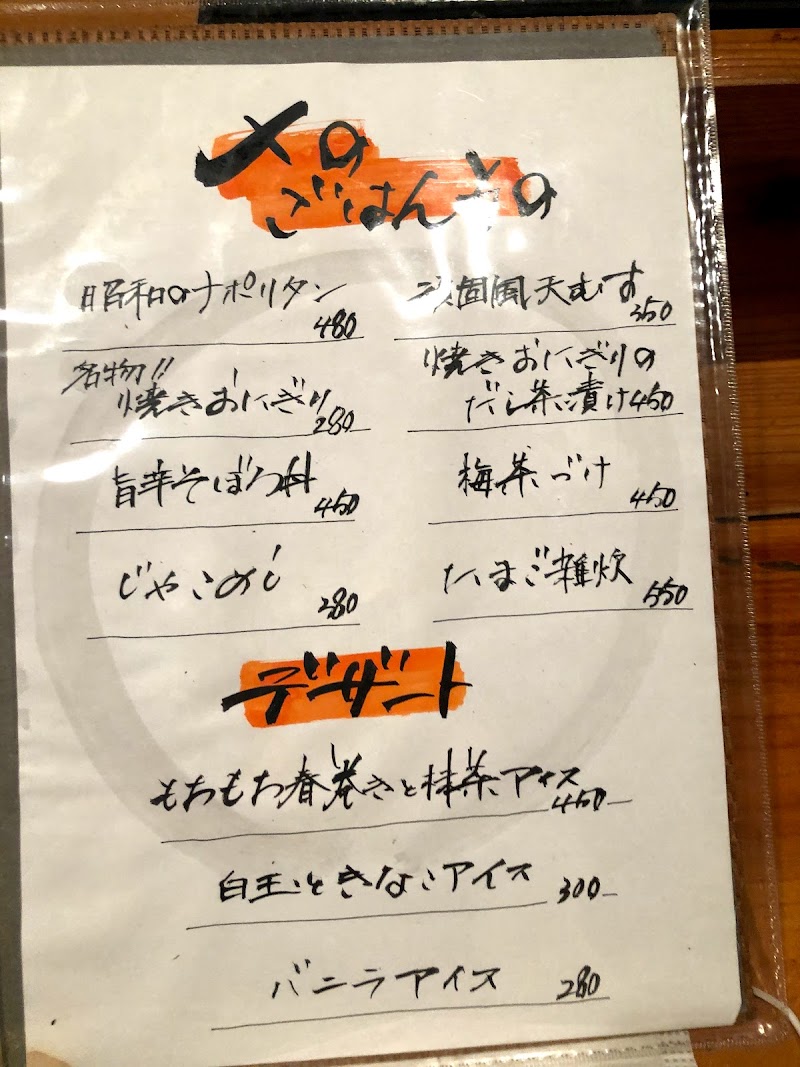 〆の
ごはんもの
昭和のナポリタン
480
名物!!
焼きおにぎり
280
旨辛そぼろ丼
450
じゃこめし
280
風天むす
350
焼きおにぎりの
だし茶漬け450
梅茶づけ
450
たまご雑炊
550
デザート
もちもち春巻きと抹茶アイス
450
白玉ときなこアイス 300
バニラアイス 280